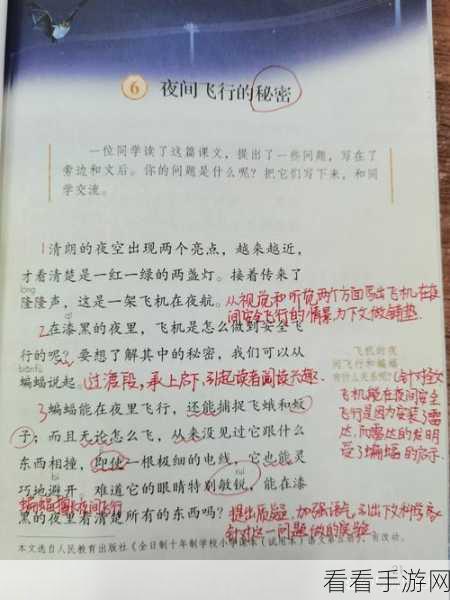 6 夜间飞行的秘密
一位同学读了这篇课文，提出了一些问题，写在了
旁边和文后。你的问题是什么呢？把它们写下来，和同
学交流。
1 清朗的夜空出现两个亮点，越来越近，
才看清楚是一红一绿的两盏灯。接着传来了
lóng
隆隆声，这是一架飞机在夜航。
从视觉和听觉两个方面写出飞机在夜
间安全飞行的情景，为下文做铺垫.
2 在漆黑的夜里，飞机是怎么做到安全飞
行的呢？要想了解其中的秘密，我们可以从
biān fú
蝙蝠说起。
过渡段，承上启下，引起读者阅读兴趣.
飞机的夜
间飞行和蝙蝠
有什么关系呢？
（针对全文
飞机能在夜间安全
飞行是因为安装了雷
达，而雷达的发明
受了蝙蝠的启示.
3 蝙蝠能在夜里飞行，还能捕捉飞蛾和蚊
子；而且无论怎么飞，从来没见过它跟什么
东西相撞，即使一根极细的电线，它也能灵
ruì
巧地避开。难道它的眼睛特别敏锐，能在漆
黑的夜里看清楚所有的东西吗？
夜间飞行
提出质疑，加强语气，引出下文科学家
针对这一问题做的实验
本文选自人民教育出版社《全日制十年制学校小学课本（试用本）语文第五册》，有改动。
21
看看手游网